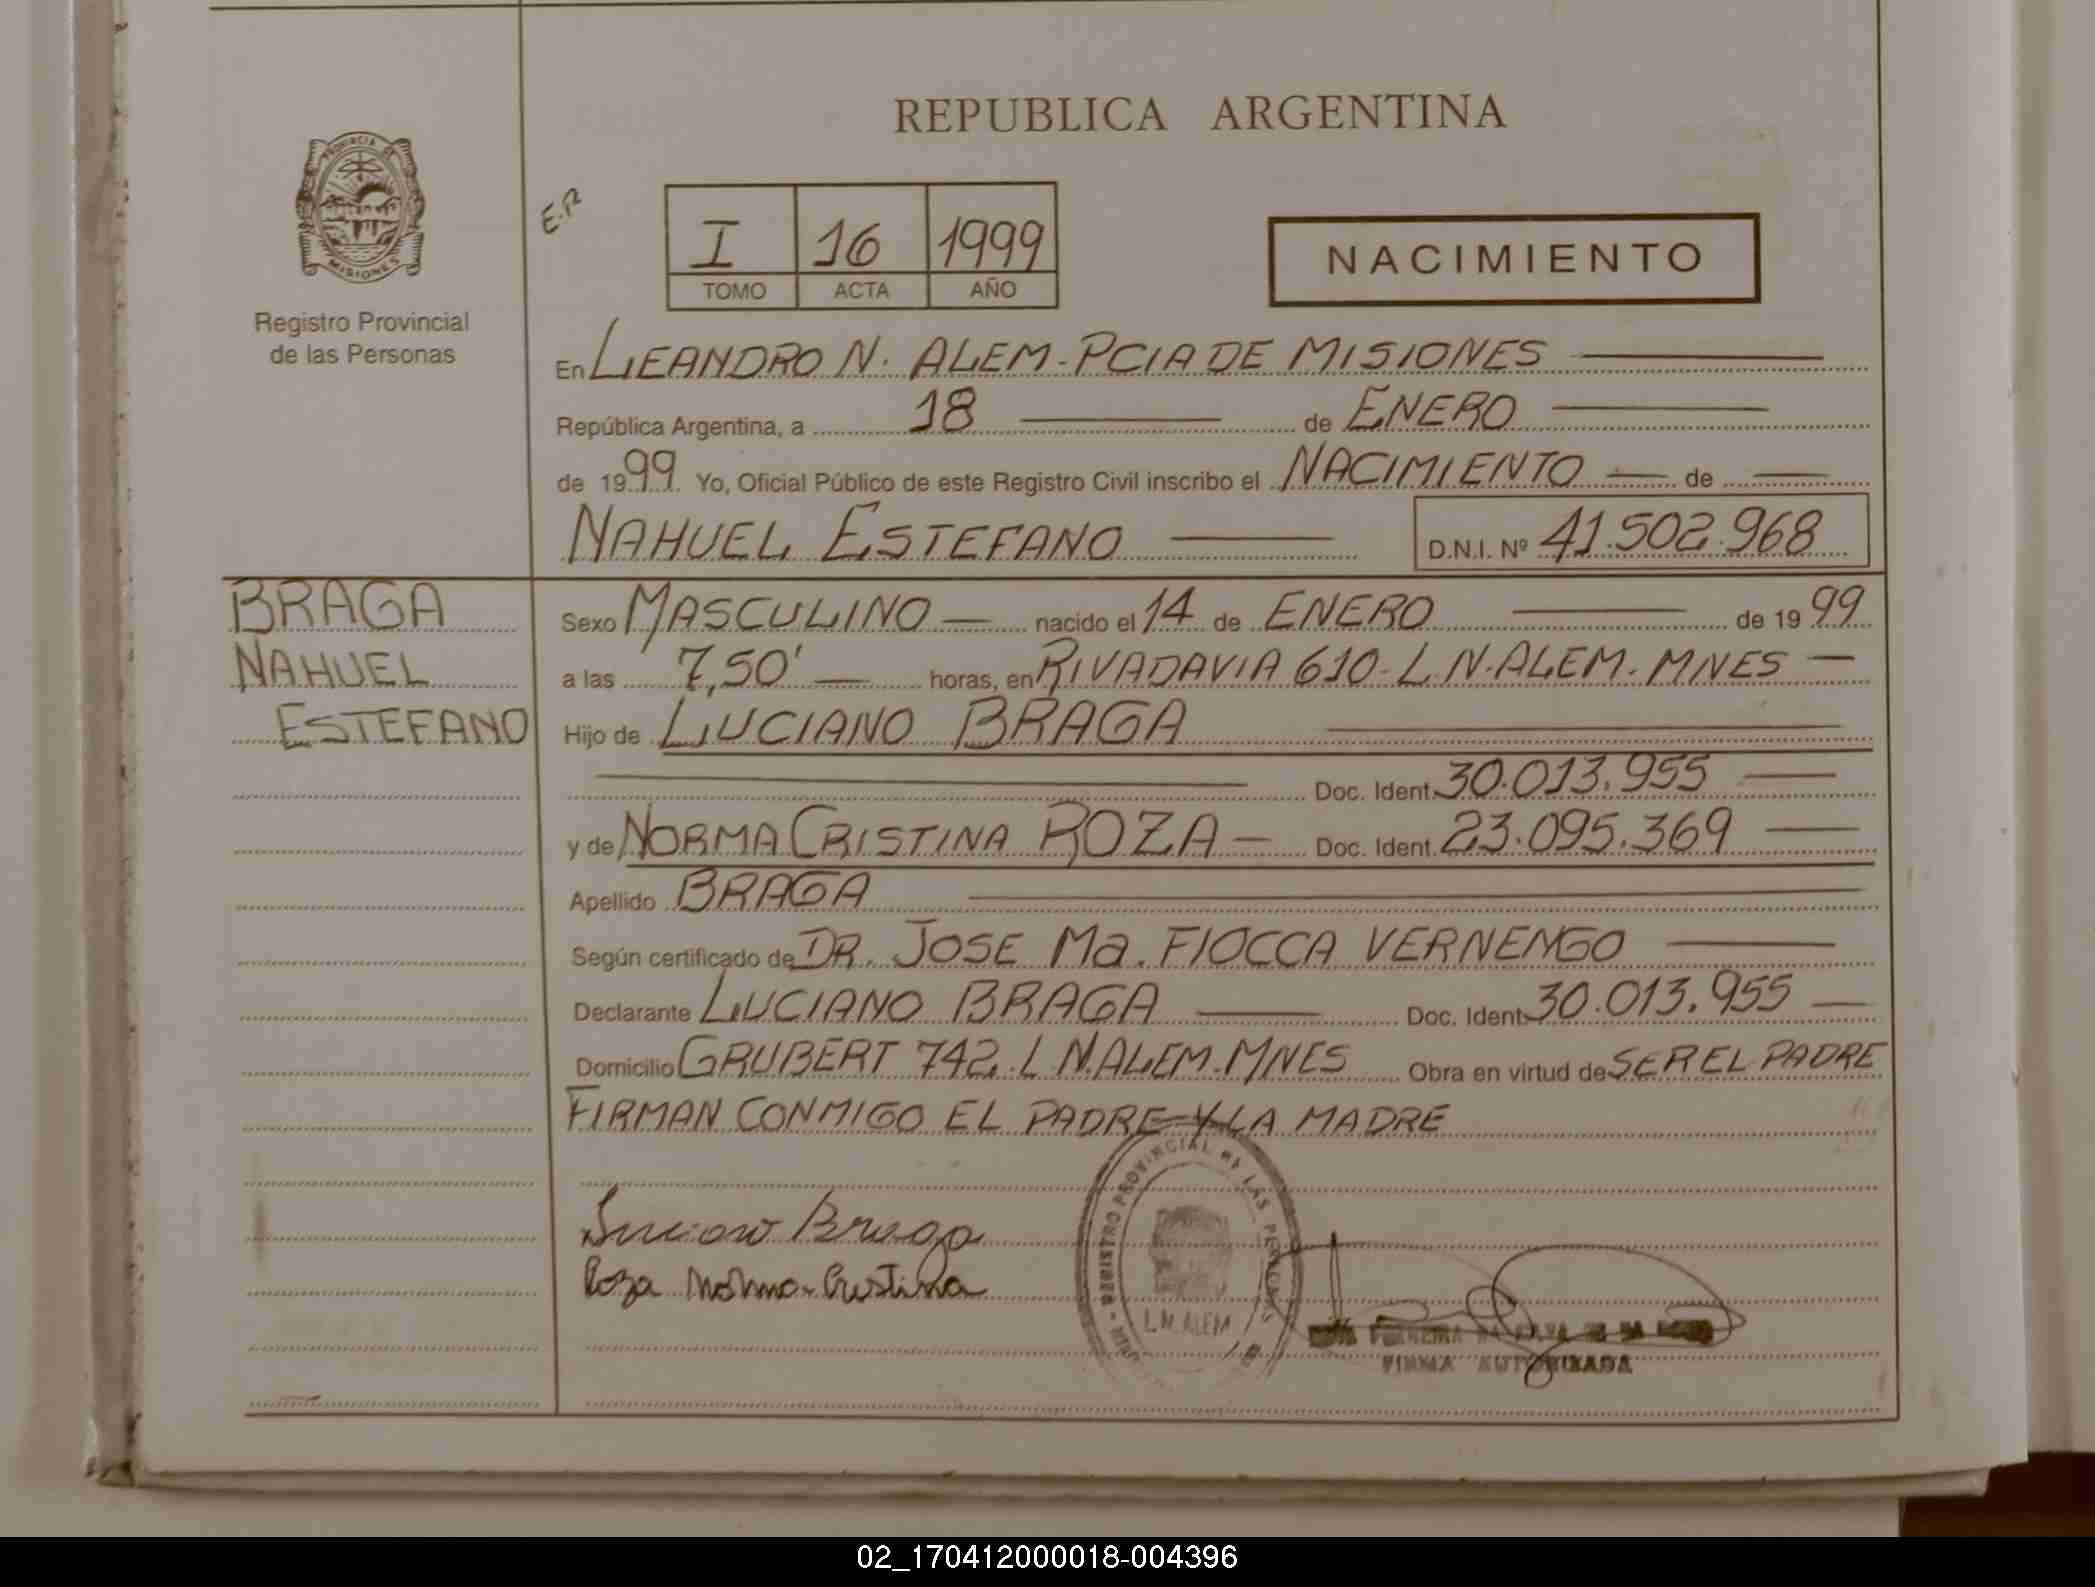 REPUBLICA ARGENTINA
PROVINCIA DE
MISIONES
Registro Provincial
de las Personas
E.R
I 16 1999
TOMO ACTA AÑO
NACIMIENTO
En LEANDRO N. ALEM - PCIA DE MISIONES
República Argentina, a 18 de ENERO
de 1999 Yo, Oficial Público de este Registro Civil inscribo el NACIMIENTO de
NAHUEL ESTEFANO D.N.I. Nº 41.502.968
BRAGA
NAHUEL
ESTEFANO
Sexo MASCULINO nacido el 14 de ENERO de 1999
a las 7,50' horas, en RIVADAVIA 610 - L.N. ALEM. MNES
Hijo de LUCIANO BRAGA
Doc. Ident. 30.013.955
y de NORMA CRISTINA ROZA Doc. Ident. 23.095.369
Apellido BRAGA
Según certificado de DR. JOSE Ma. FIOCCA VERNENGO
Declarante LUCIANO BRAGA Doc. Ident. 30.013.955
Domicilio GRUBERT 742. L.N. ALEM. MNES Obra en virtud de SER EL PADRE
FIRMAN CONMIGO EL PADRE Y LA MADRE
Luciano Braga
Roza Norma Cristina
REGISTRO PROVINCIAL DE LAS PERSONAS
L.N. ALEM
FERREIRA DA SILVA DE
FIRMA AUTORIZADA
02_170412000018-004396